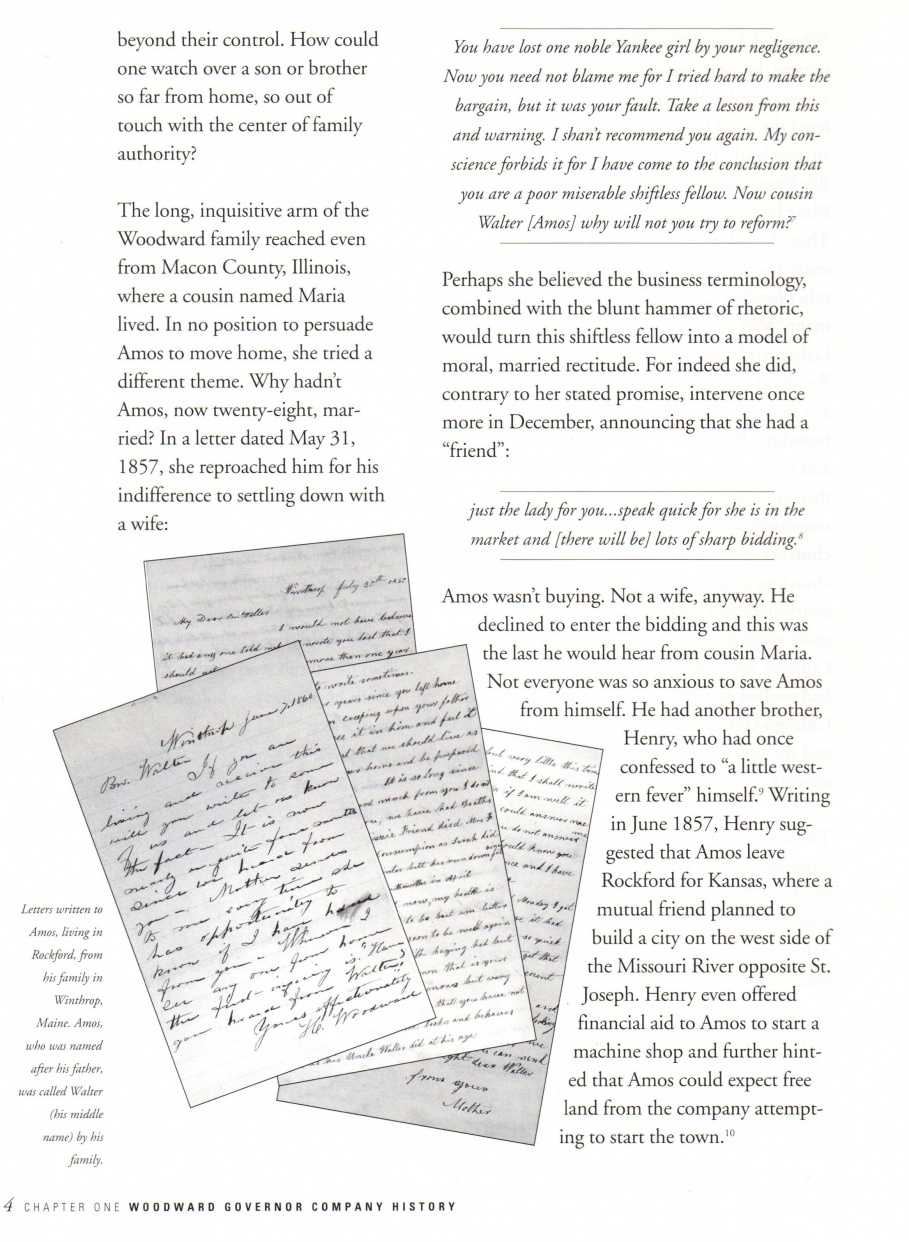 beyond their control. How could
one watch over a son or brother
so far from home, so out of
touch with the center of family
authority?
The long, inquisitive arm of the
Woodward family reached even
from Macon County, Illinois,
where a cousin named Maria
lived. In no position to persuade
Amos to move home, she tried a
different theme. Why hadn't
Amos, now twenty-eight, mar-
ried? In a letter dated May 31,
1857, she reproached him for his
indifference to settling down with
a wife:
You have lost one noble Yankee girl by your negligence.
Now you need not blame me for I tried hard to make the
bargain, but it was your fault. Take a lesson from this
and warning. I shan't recommend you again. My con-
science forbids it for I have come to the conclusion that
you are a poor miserable shiftless fellow. Now cousin
Walter [Amos] why will not you try to reform?7
Perhaps she believed the business terminology,
combined with the blunt hammer of rhetoric,
would turn this shiftless fellow into a model of
moral, married rectitude. For indeed she did,
contrary to her stated promise, intervene once
more in December, announcing that she had a
“friend”:
just the lady for you...speak quick for she is in the
market and [there will be] lots of sharp bidding.8
Amos wasn't buying. Not a wife, anyway. He
declined to enter the bidding and this was
the last he would hear from cousin Maria.
Not everyone was so anxious to save Amos
from himself. He had another brother,
Henry, who had once
confessed to “a little west-
ern fever” himself.9 Writing
in June 1857, Henry sug-
gested that Amos leave
Rockford for Kansas, where a
mutual friend planned to
build a city on the west side of
the Missouri River opposite St.
Joseph. Henry even offered
financial aid to Amos to start a
machine shop and further hint-
ed that Amos could expect free
land from the company attempt-
ing to start the town.10
Winthrop July 30th
My Dear Son Walter
I would not have believed
it had any one told me
wrote you last that I
should
more then one year
Winthrop June 7, 1860
Bro. Walter
If you are
living and receive this
will you write to some
of us and let us know
the fact - It is now
nearly or quite four months
since we heard from
you - Mother sends
to me every time she
has opportunity to
know if I have heard
from you - Whenever I
see any one from home
the first inquiry is "Have
you heard from Walter?"
Yours affectionately
H. Woodward
to write sometimes.
years since you left home
creeping upon your father
see it in him and feel it
that we should live as
home and be prepared
It is so long since
much from you I dont
we have had Deaths
Friend died Mrs F
consumption as Sarah did
months in April
now, my health is
to be but am better
soon to be well again
haying had but
own that is your
mows but very
that you have not
and behaves
his Uncle Walter did at his age
but very little this time
and that I shall write
if I am well it
could answer me
do not answer
could know you
once and I have
Monday I got
it had
so quick
get that
count
and
can send
dear Walter
from your
Mother
Letters written to
Amos, living in
Rockford, from
his family in
Winthrop,
Maine. Amos,
who was named
after his father,
was called Walter
(his middle
name) by his
family.
4 CHAPTER ONE WOODWARD GOVERNOR COMPANY HISTORY